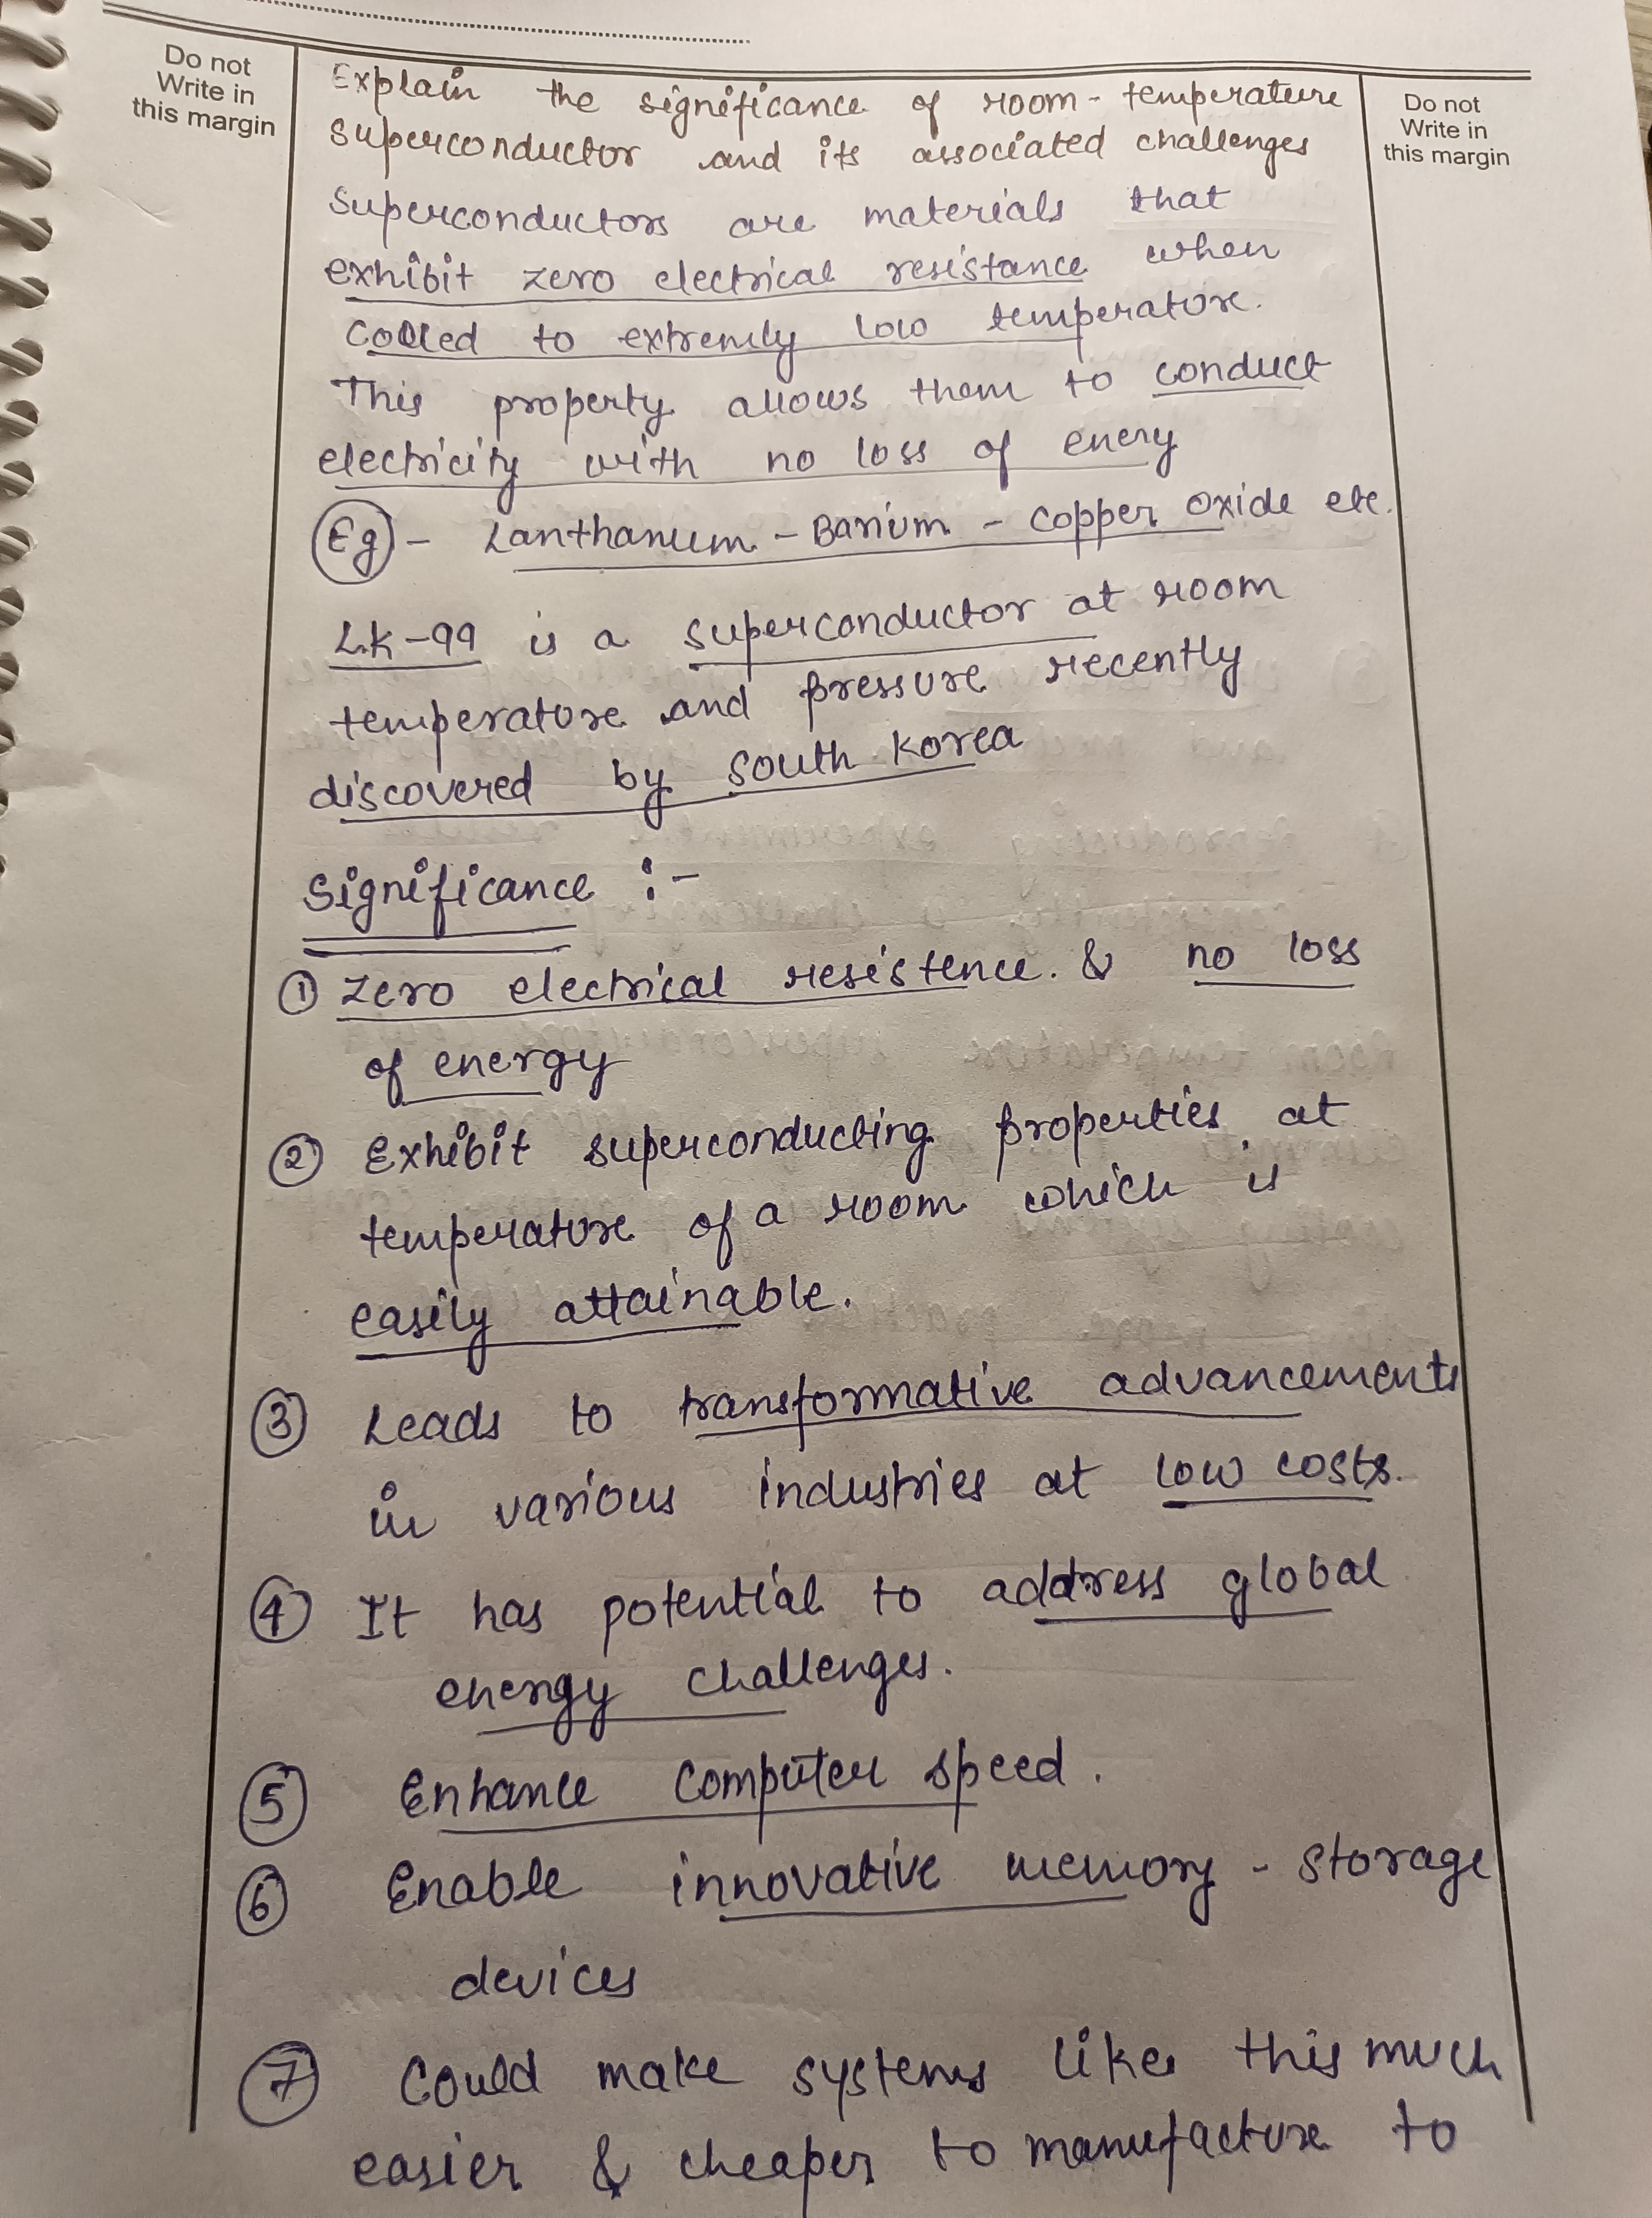 Do not
Write in
this margin
Do not
Write in
this margin
Explain the significance of room-temperature
superconductor and its associated challenges
Superconductors are materials that
exhibit zero electrical resistance when
cooled to extremly low temperature.
This property allows them to conduct
electricity with no loss of enery
Eg - Lanthanum - Barium - Copper oxide etc.
LK-99 is a superconductor at room
temperature and pressure recently
discovered by South Korea
Significance :-
① Zero electrical resistence & no loss
of energy
② Exhibit superconducting properties at
temperature of a room which is
easily attainable.
③ Leads to transformative advancements
in various industries at low costs.
④ It has potential to address global
energy challenges.
⑤ Enhance computer speed.
⑥ Enable innovative memory - storage
devices
⑦ Could make systems like this much
easier & cheaper to manufacture to